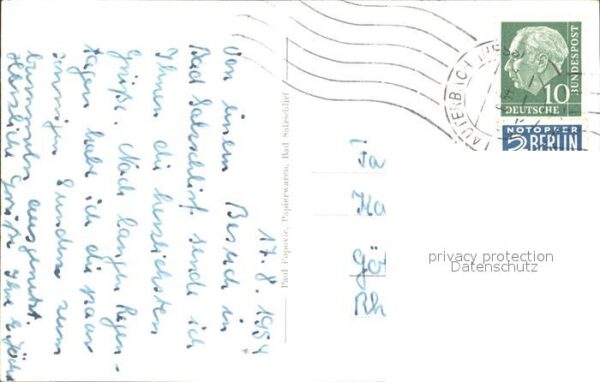 17.8.1954
Von einem Besuch in
Bad Salzschlirf sende ich
Ihnen die herzlichsten
Grüße. Nach langen Regen-
tagen habe ich die paar
sonnigen Stunden zum
bummeln ausgenutzt.
Herzliche Grüße Ihr
Paul Popovic, Papierwaren, Bad Salzschlirf
LAUTERBACH (HESS)
DEUTSCHE
BUNDESPOST
10
NOTOPFER
2 BERLIN
Ka
Rh
privacy protection
Datenschutz